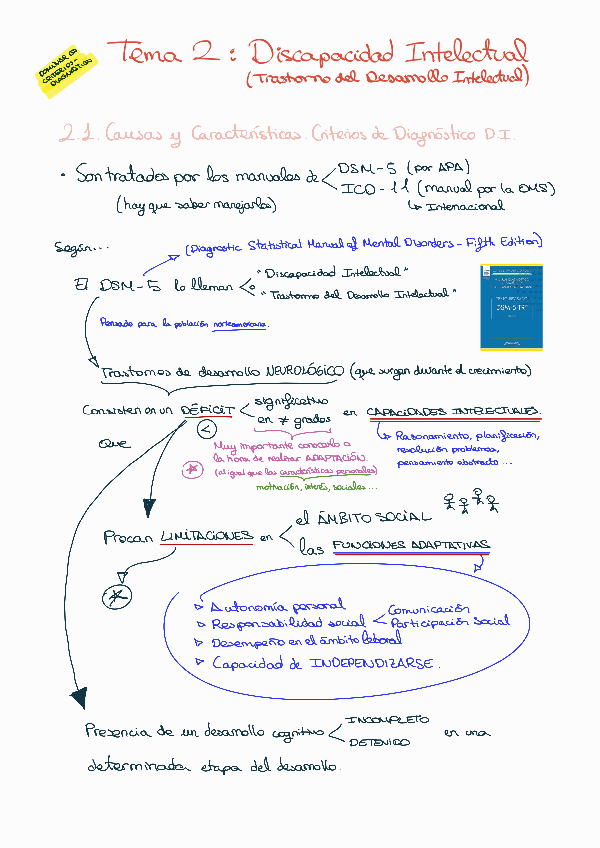 DOMINAR LOS
CRITERIOS -
DIAGNÓSTICO
Tema 2 : Discapacidad Intelectual
(Trastorno del Desarrollo Intelectual)
2.1. Causas y Características. Criterios de Diagnóstico D.I.
• Son tratados por los manuales de
DSM-5 (por APA)
ICO-11 (manual por la OMS)
(hay que saber manejarlos)
↳ Internacional
Según...
(Diagnostic Statistical Manual of Mental Disorders - Fifth Edition)
El DSM-5 lo llaman
"Discapacidad Intelectual"
"Trastorno del Desarrollo Intelectual"
Pensado para la población norteamericana.
DSM-5-TR
Trastornos de desarrollo NEUROLÓGICO (que surgen durante el crecimiento)
Consisten en un DÉFICIT
significativo
en ≠ grados
en CAPACIDADES INTELECTUALES.
(<)
Que
Muy importante conocerlo a
la hora de realizar ADAPTACIÓN.
(al igual que las características personales)
motivación, interés, sociales...
↳ Razonamiento, planificación,
resolución problemas,
pensamiento abstracto...
Procan LIMITACIONES en
el ÁMBITO SOCIAL
las FUNCIONES ADAPTATIVAS
▷ Autonomía personal
▷ Responsabilidad social
Comunicación
Participación social
▷ Desempeño en el ámbito laboral
▷ Capacidad de INDEPENDIZARSE.
Presencia de un desarrollo cognitivo
INCOMPLETO
DETENIDO
en una
determinada etapa del desarrollo.